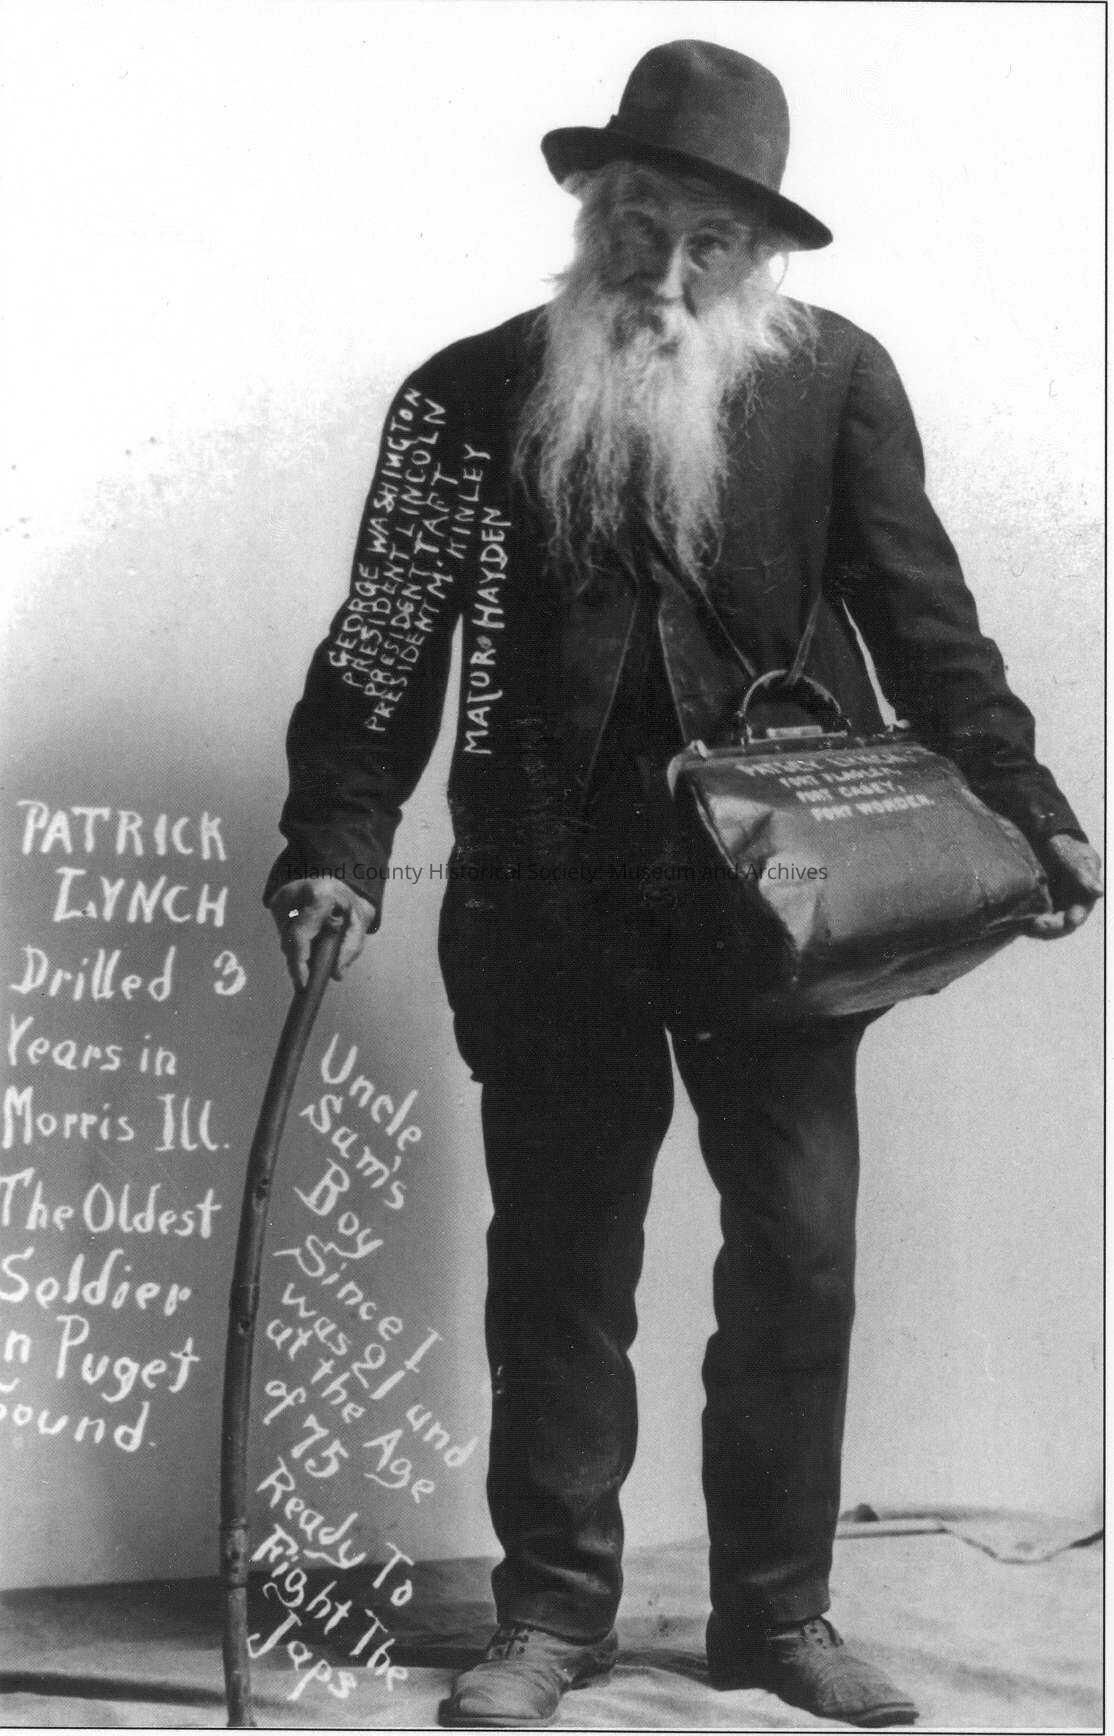 GEORGE WASHINGTON
PRESIDENT LINCOLN
PRESIDENT TAFT
PRESIDENT M. KINLEY
MAJUR HAYDEN
PATSEY LYNCH
FORT FLAGLER,
FORT CASEY,
FORT WORDEN.
Island County Historical Society: Museum and Archives
PATRICK
LYNCH
Drilled 3
Years in
Morris Ill.
The Oldest
Soldier
n Puget
Sound.
Uncle
Sam's
Boy
Since I
was 21 und
at the Age
of 75
Ready To
Fight The
Japs